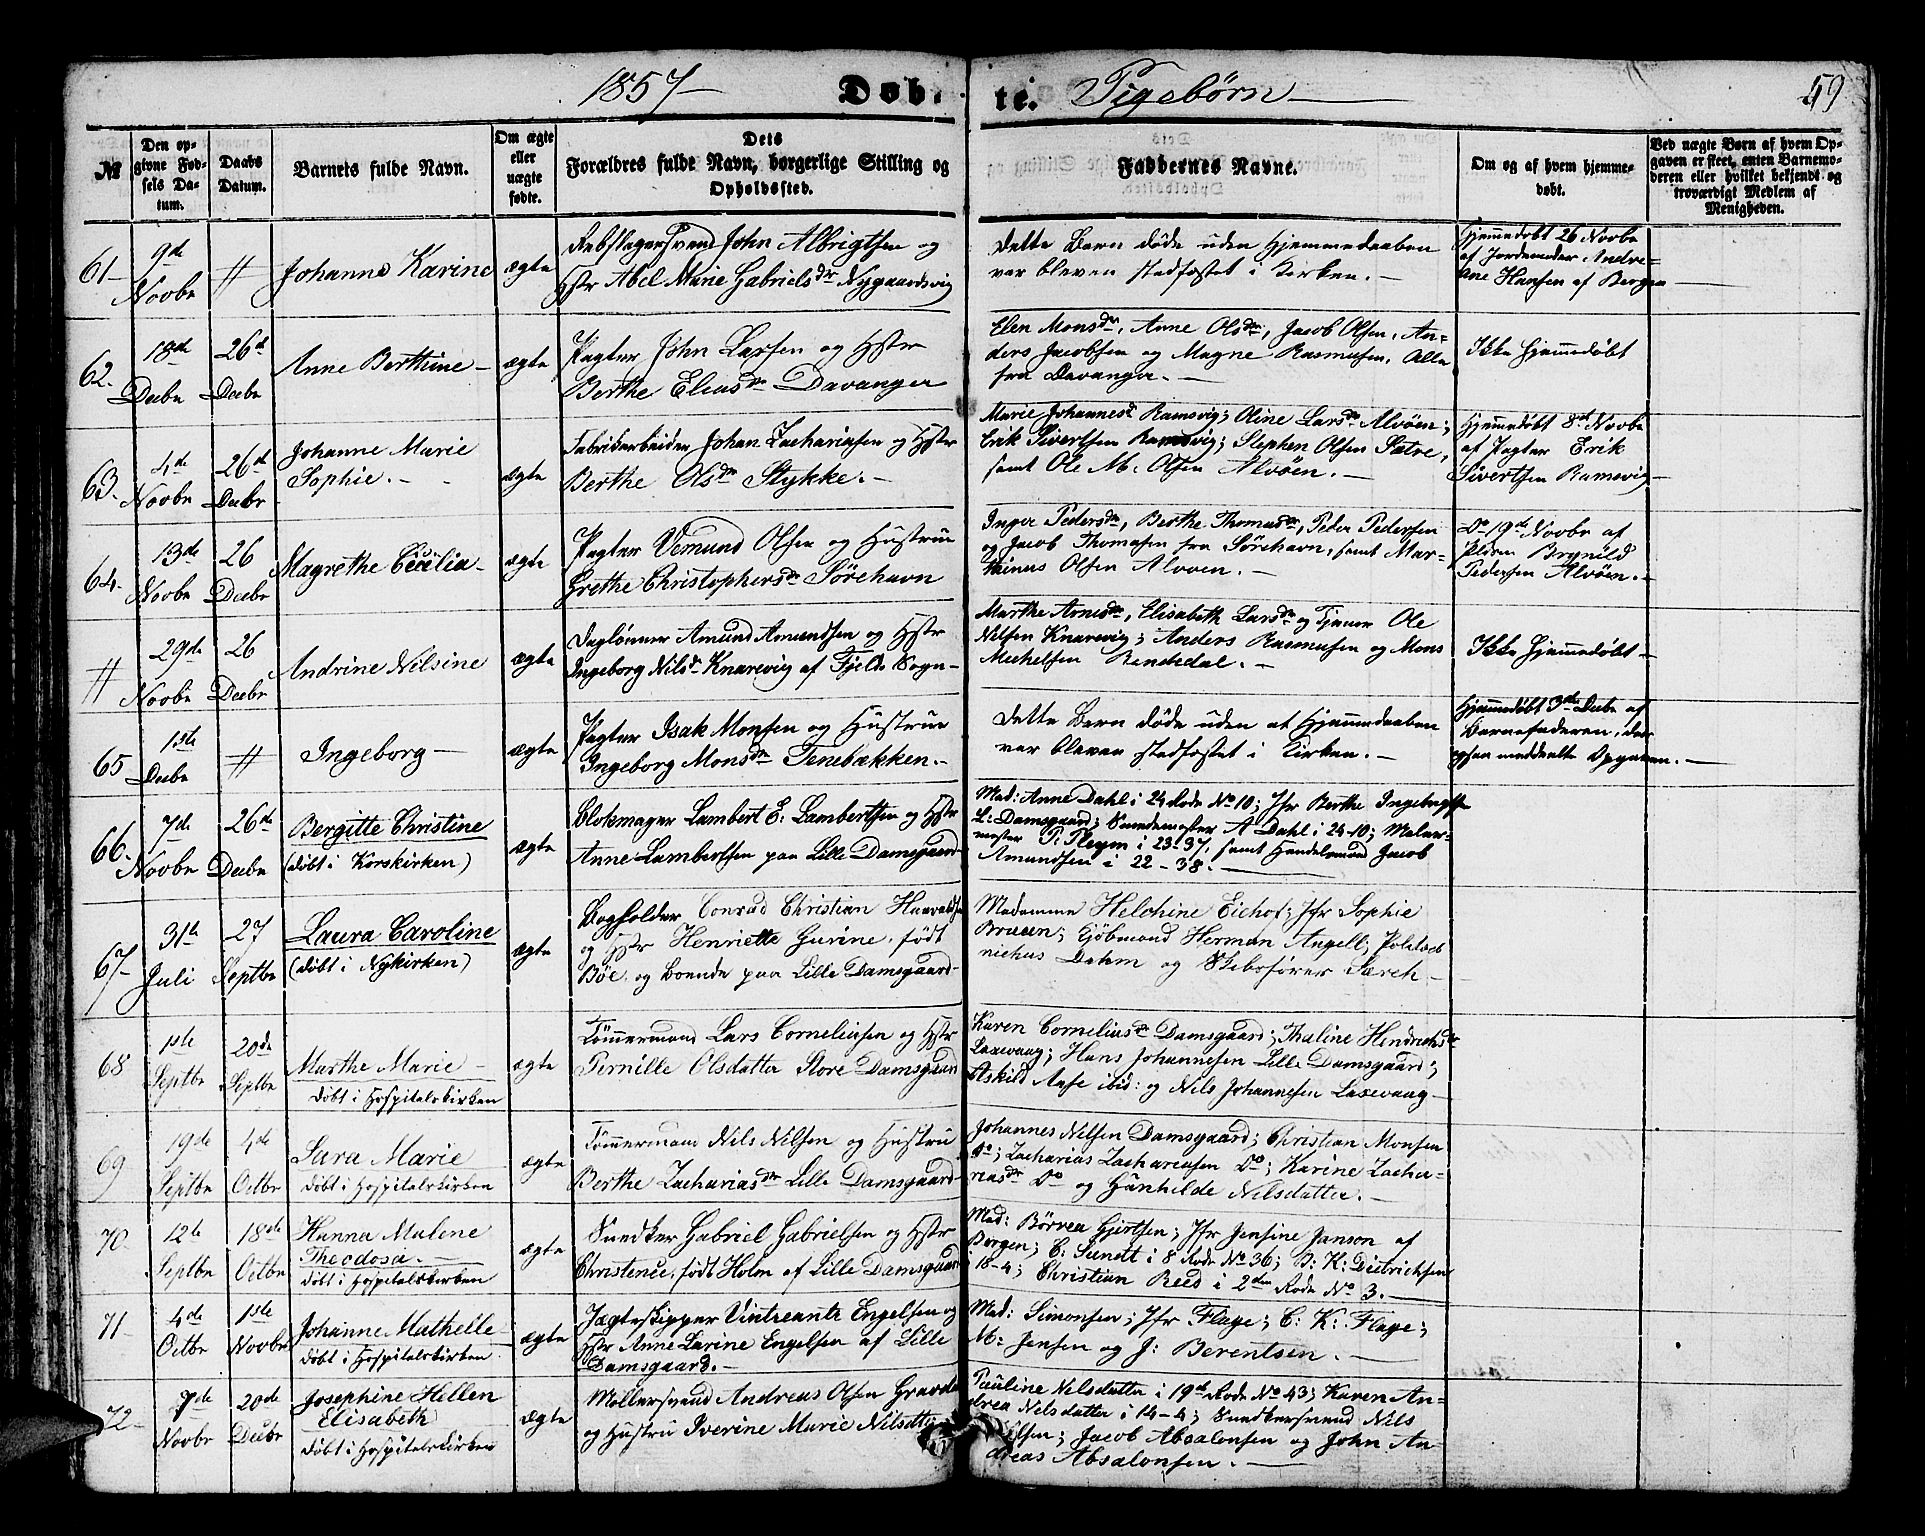 1857
Døbte. Pigebørn
59
№
Den opgivne Fødsels Datum.
Daabs Datum.
Barnets fulde Navn.
Om ægte eller uægte fødte.
Dets Forældres fulde Navn, borgerlige Stilling og Opholdssted.
Faddernes Navne.
Om og af hvem hjemmedøbt.
Ved uægte Børn af hvem Opgaven er skeet, enten Barnemoderen eller hvilket bekjendt og troværdigt Medlem af Menigheden.
61
9de Novbr
//
Johanne Karine
ægte
Rebslagersvend John Albrigtsen og
Hstr Abel Marie Gabrielsdr Nygaardsvig
Dette Barn døde uden Hjemmedaaben
var bleven stadfæstet i Kirken.
Hjemmedøbt 26 Novbr
af Jordemoder Andreane
Hansen af Bergen
62.
18de Decbr
26de Decbr
Anne Berthine
ægte
Pagter John Larsen og Hstr
Berthe Eliasdr Davanger
Elen Monsdr, Anne Olsdr, Jacob Olsen, Anders
Jacobsen og Magne Rasmusen, Alle
fra Davanger.
Ikke Hjemmedøbt
63.
4de Novbr
26de Decbr
Johanne Marie
Sophie.
ægte
Fabrikarbeider Johan Zachariasen og Hstr
Berthe Olsdr Stykke.
Marie Johannesd Ramsvig; Oline Larsdr Alvøen;
Erik Sivertsen Ramsvig; Stephen Olsen Sætre,
samt Ole M. Olsen Alvøen.
Hjemmedøbt 8de Novbr
af Pagter Erik
Sivertsen Ramsvig
64.
13de Novbr
26 Decbr
Magrethe Cecilia
ægte
Pagter Vemund Olsen og Hustrue
Grethe Christophersdr Sørehavn
Inger Pedersdr, Berthe Thomasdr, Peder Pedersen
og Jacob Thomasen fra Sørehavn, samt Marthinus
Olsen Alvøen.
Do 19de Novbr af
Brynild
Pedersen Alvøen.
//
29de Novbr
26 Decbr
Andrine Nilsine
ægte
Daglønner Amund Amundsen og Hstr
Ingeborg Nilsdr Knarevig af Fjelds Sogn
Marthe Arnesdr, Elisabeth Larsdr og Tjener Ole
Nilsen Knarevig; Anders Rasmusen og Mons
Mechelsen Bendsdal.
Ikke Hjemmedøbt
65
1ste Decbr
//
Ingeborg
ægte
Pagter Isak Monsen og Hustrue
Ingeborg Monsdr Tenebækken.
Dette Barn døde uden at Hjemmedaaben
var bleven stadfæstet i Kirken.
Hjemmedøbt 3de Decbr af
Barnefaderen, der
ogsaa meddeelte Opgaven.
66.
7de Novbr
26de Decbr
Bergitte Christine
(døbt i Korskirken)
ægte
Blokmager Lambert E: Lambertsen og Hstr
Anne Lambertsen paa Lille Damsgaard
Mad: Anne Dahl i 24 Rode No 10; Jfr Berthe
L: Damsgaard; A Dahl i 24-10; Malermester
P: Pleym i 23-37, samt Handelsmand Jacob
Amundsen i 22-38.
67
31te Juli
27 Septbr
Laura Caroline
(døbt i Nykirken)
ægte
Bogholder Conrad Christian
og Hstr Henriette Gurine, født
Bøe, og boende paa Lille Damsgaard
Madamme Helchine Eichof; Jfr Sophie
Bruen; Kjøbmand Herman Angell;
Dahm og Skibsfører Særch
68
1ste Septbr
20de Septbr
Marthe Marie
døbt i Hospitalskirken
ægte
Tømmermand Lars Corneliusen og Hstr
Pernille Olsdatter Store Damsgaard
Karen Corneliusdr Damsgaard; Thaline Hendrichsdr
Laxevaag; Hans Johannesen Lille Damsgaard;
Askild ibid: og Nils Johannesen Laxevaag
69
19de Septbr
4de Octbr
Sara Marie
døbt i Hospitalskirken
ægte
Tømmermand Nils Nilsen og Hustru
Berthe Zachariasdr Lille Damsgaard
Johannes Nilsen Damsgaard; Christian Monsen
Do; Zacharias Zachariasen Do; Karine Zachariasdr
Do og Gunhilde Nilsdatter.
70
12te Septbr
18de Octbr
Hanna Malene
Theodosa
døbt i Hospitalskirken
ægte
Snedker Gabriel Gabrielsen og Hstr
Christence, født Holm af Lille Damsgaard
Mad: Børrea Gjertsen; Jfr Jensine Janson af
Bergen; C: Sunett i 8 Rode No 36; B: K: Dietrichsen
18-4; Christian Reed i 2den Rode No 3.
71
4de Octbr
1ste Novbr
Johanne Mathelle
døbt i Hospitalskirken
ægte
Jagteskipper Engelsen og
Hstr Anne Larine Engelsen af Lille
Damsgaard.
Mad: Simonsen; Jfr Flage; C: K: Flage;
M: Jensen og J: Berentsen.
72
7de Novbr
20de Decbr
Josephine Hellen
Elisabeth
døbt i Hospitalskirken
ægte
Møllersvend Andreas Olsen Gravdal
og Hustru Iverine Marie Nilsdtr
Pauline Nelsdatter i 19de Rode No 43; Karen Andrea
Nelsdatter i 14-4; Snedkersvend Nils
Jacob Absalonsen og John Andreas
Absalonsen.